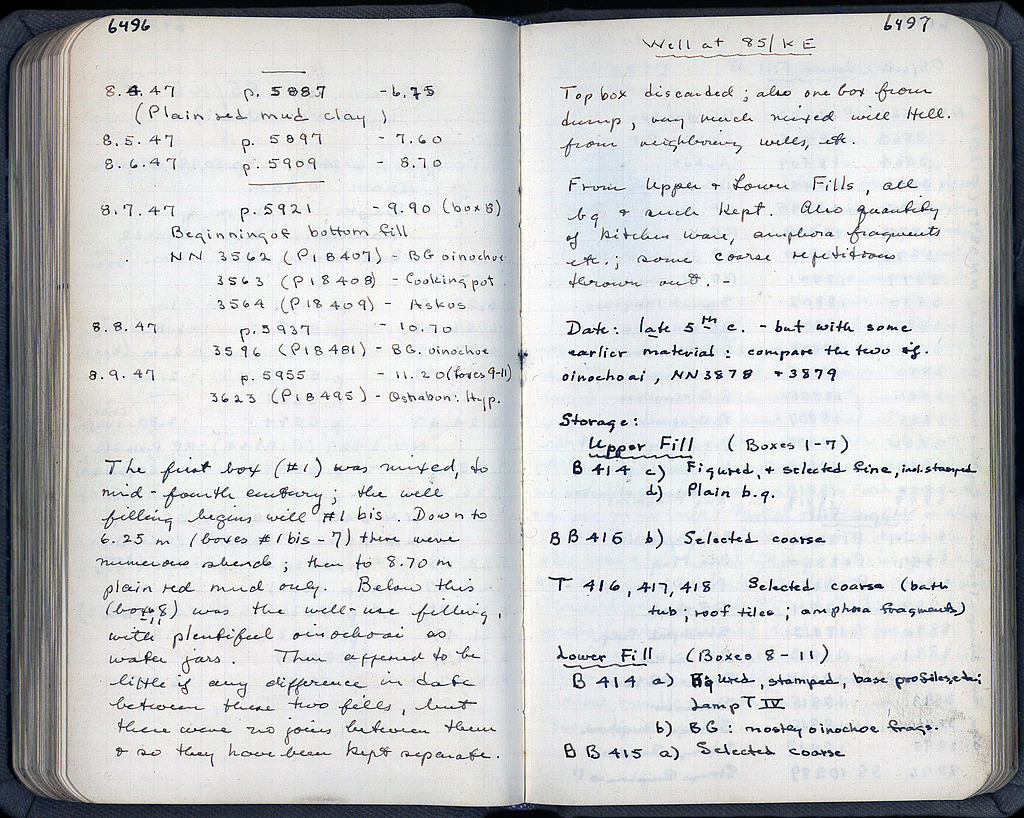 6496
8.4.47 p. 5887 - 6.75
(Plain red mud clay)
8.5.47 p. 5897 - 7.60
8.6.47 p. 5909 - 8.70
8.7.47 p. 5921 - 9.90 (box 8)
Beginning of bottom fill
NN 3562 (P18407) - BG oinochoe
3563 (P18408) - Cooking pot
3564 (P18409) - Askos
8.8.47 p. 5937 - 10.70
3596 (P18481) - BG. oinochoe
8.9.47 p. 5955 - 11.20 (boxes 9-11)
3623 (P18495) - Ostrakon: Hyp.
The first box (#1) was mixed, to
mid-fourth century; the well
filling begins with #1 bis. Down to
6.25 m (boxes #1 bis - 7) there were
numerous sherds; then to 8.70 m
plain red mud only. Below this
(boxes 8-11) was the well-use filling,
with plentiful oinochoai as
water jars. There appeared to be
little if any difference in date
between these two fills, but
there were no joins between them
& so they have been kept separate.
6497
Well at 85/KE
Top box discarded; also one box from
dump, very much mixed with Hell.
from neighboring wells, etc.
From Upper & Lower Fills, all
bg & such kept. Also quantity
of kitchen ware, amphora fragments
etc.; some coarse repetitious
thrown out. -
Date: late 5th c. - but with some
earlier material: compare the two sf.
oinochoai, NN3878 & 3879
Storage:
Upper Fill (Boxes 1-7)
B 414 c) Figured, & selected fine, incl. stamped
d) Plain b.g.
BB 415 b) Selected coarse
T 416, 417, 418 Selected coarse (bath
tub; roof tiles; amphora fragments)
Lower Fill (Boxes 8-11)
B 414 a) Figured, stamped, base profiles etc;
Lamp T IV
b) BG: mostly oinochoe frags.
BB 415 a) Selected coarse